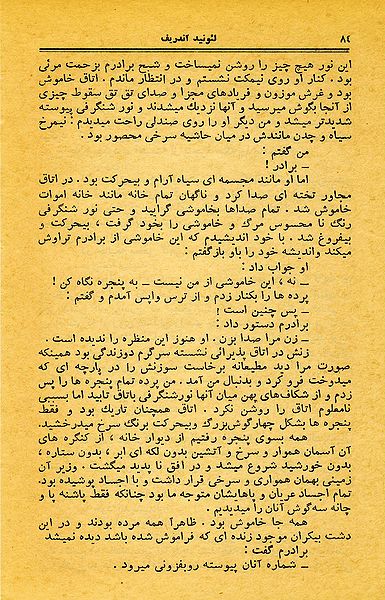 ۸۴ لئونید آندریف
این نور هیچ چیز را روشن نمیساخت و شبح برادرم بزحمت مرئی
بود . کنار او روی نیمکت نشستم و در انتظار ماندم . اتاق خاموش
بود و غرش موزون و فریادهای مجزا و صدای تق تق سقوط چیزی
از آنجا بگوش میرسید و آنها نزدیک میشدند و نور شنگرفی پیوسته
شدیدتر میشد و من دیگر او را روی صندلی راحت میدیدم : نیمرخ
سیاه و چدن مانندش در میان حاشیه سرخی محصور بود .
من گفتم :
ـ برادر !
اما او مانند مجسمه ای سیاه آرام و بیحرکت بود . در اتاق
مجاور تخته ای صدا کرد و ناگهان تمام خانه مانند خانه اموات
خاموش شد . تمام صداها بخاموشی گرایید و حتی نور شنگرفی
رنگ نا محسوس مرگ و خاموشی را بخود گرفت ، بیحرکت و
بیفروغ شد . با خود اندیشیدم که این خاموشی از برادرم تراوش
میکند واندیشه خود را باو بازگفتم :
او جواب داد :
ـ نه ، این خاموشی از من نیست ـ به پنجره نگاه کن !
پرده ها را بکنار زدم و از ترس واپس آمدم و گفتم :
ـ پس چنین است !
برادرم دستور داد :
ـ زن مرا صدا بزن . او هنوز این منظره را ندیده است .
زنش در اتاق پذیرائی نشسته سرگرم دوزندگی بود همینکه
صورت مرا دید مطیعانه برخاست سوزنش را در پارچه ای که
میدوخت فرو کرد و بدنبال من آمد . من پرده تمام پنجره ها را پس
زدم و از شکاف‌های پهن میان آنها نورشنگرفی باتاق تابید اما بسببی
نامعلوم اتاق را روشن نکرد . اتاق همچنان تاریک بود و فقط
پنجره ها بشکل چهارگوش‌بزرگ وبیحرکت برنگ سرخ میدرخشید.
همه بسوی پنجره رفتیم از دیوار خانه ، از کنگره های
آن آسمان هموار و سرخ و آتشین بدون لکه ای ابر ، بدون ستاره ،
بدون خورشید شروع میشد و در افق نا پدید میگشت . وزیر آن
زمینی بهمان همواری و سرخی قرار داشت و با اجساد پوشیده بود.
تمام اجساد عریان و پاهایشان متوجه ما بود چنانکه فقط پاشنه پا و
چانه سه‌گوش آنان را میدیدیم .
همه جا خاموش بود . ظاهراً همه مرده بودند و در این
دشت بیکران موجود زنده ای که فراموش شده باشد دیده نمیشد
برادرم گفت :
ـ شماره آنان پیوسته روبفزونی میرود .